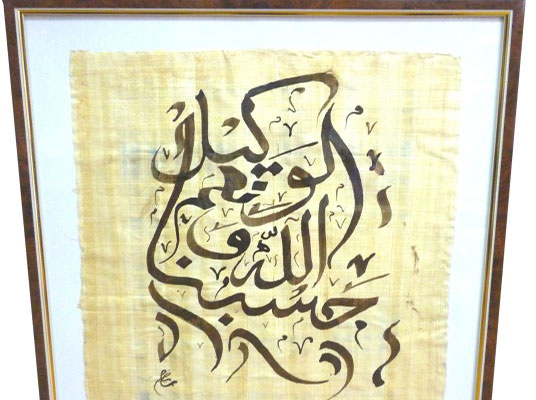 حسبنا
الله و
نعم
الوكيل